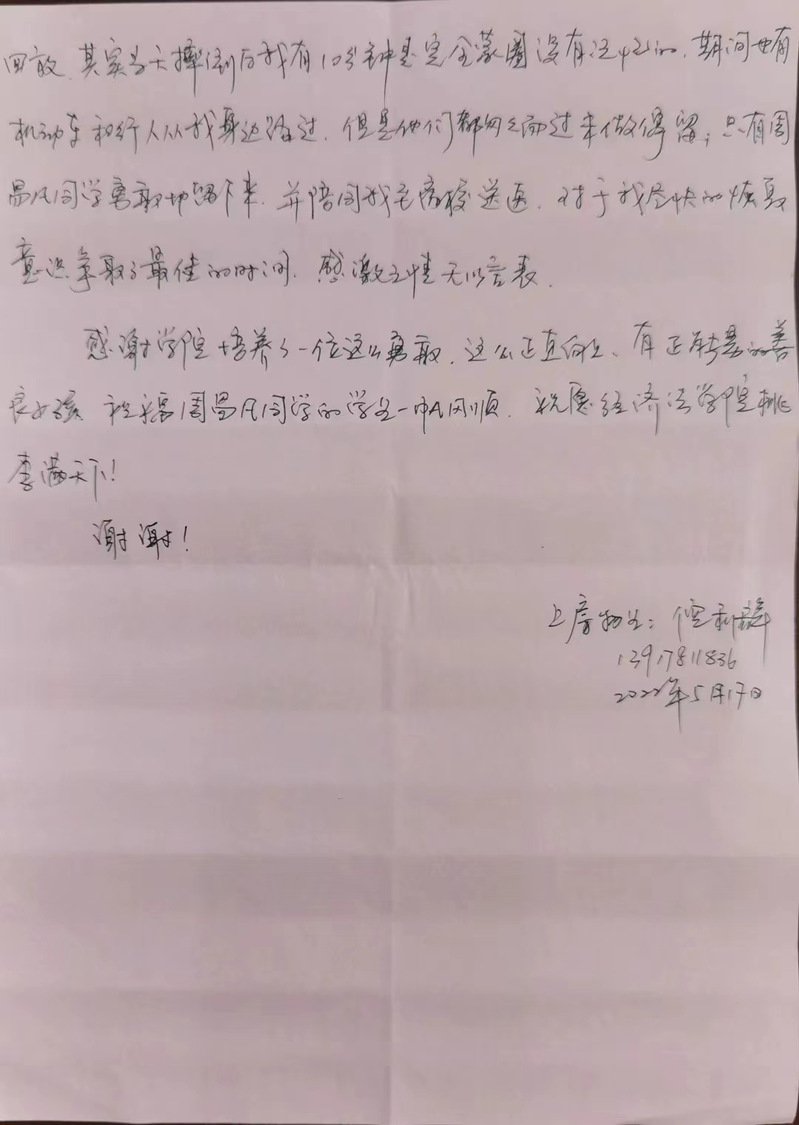 回放、其实当天摔倒后我有10分钟是完全蒙圈没有记忆的,期间也有
机动车和行人从我身边路过,但是他们都匆匆而过未做停留,只有周
昌凡同学勇敢地留下来,并陪同我至高校送医,对于我尽快的恢复
意识争取了最佳的时间,感激之情无以言表。
感谢学院培养了一位这么勇敢、这么正直向上、有正能量的善
良女孩,祝福周昌凡同学的学生一帆风顺,祝愿经济法学院桃
李满天下!
谢谢!
上房物业:倪利
13917811836
2022年5月17日